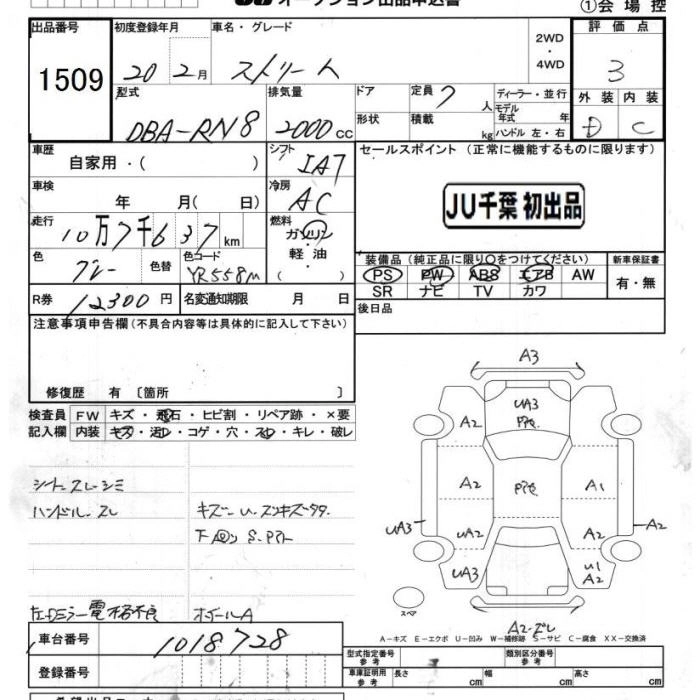 オークション出品申込書
①会場控
出品番号 初度登録年月 車名・グレード 2WD ・ 4WD 評価点
1509 20 2月 ストリート 3
型式 排気量 ドア 定員 7 人 ディーラー・並行 外装 内装
DBA-RN8 2000 cc 形状 積載 kg モデル年式 年 ハンドル 左・右 D C
車歴 シフト セールスポイント (正常に機能するものに限ります)
自家用・( ) IA7
車検 冷房
年 月( 日) AC
JU千葉 初出品
走行 燃料
10万7千637 km ガソリン 軽・油
装備品 (純正品に限り○をつけてください) 新車保証書
色 グレー 色替 色コード YR558M PS PW ABS エアB AW 有・無
SR ナビ TV カワ
R券 12300円 名変通知期限 月 日
後日品
注意事項申告欄(不具合内容等は具体的に記入して下さい)
修復歴 有 〔箇所 〕
検査員 FW キズ・飛石・ヒビ割・リペア跡・×要
記入欄 内装 キズ・汚レ・コゲ・穴・スレ・キレ・破レ
シートスレ・シミ
ハンドル-スレ キズー
下回り S.アト
左ドミラー電格不良 ホイールA
A3
UA3
A2 A2
A2 A1
UA3 UA2 A2 A2
UA3 U1
A2
スペア
A2-ズレ
A-キズ E-エクボ U-凹み W-補修跡 S-サビ C-腐食 XX-交換済
車台番号 1018728
型式指定番号 参考 類別区分番号 参考
登録番号 車庫証明用 参考 長さ cm 幅 cm 高さ cm